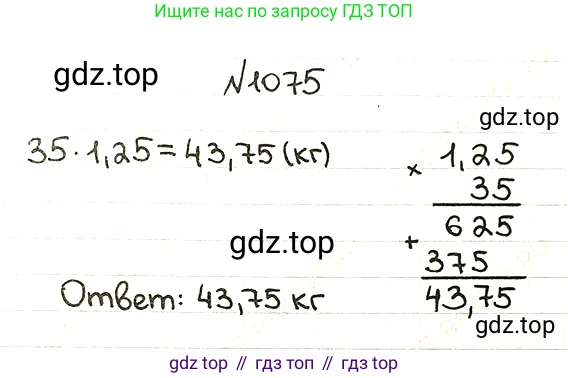 Ищите нас по запросу ГДЗ ТОП
gdz.top
№1075
gdz.top
35·1,25=43,75(кг)
× 1,25
35
625
+
375
43,75
gdz.top
Ответ: 43,75 кг
gdz.top
gdz.top // гдз топ // гдз.топ